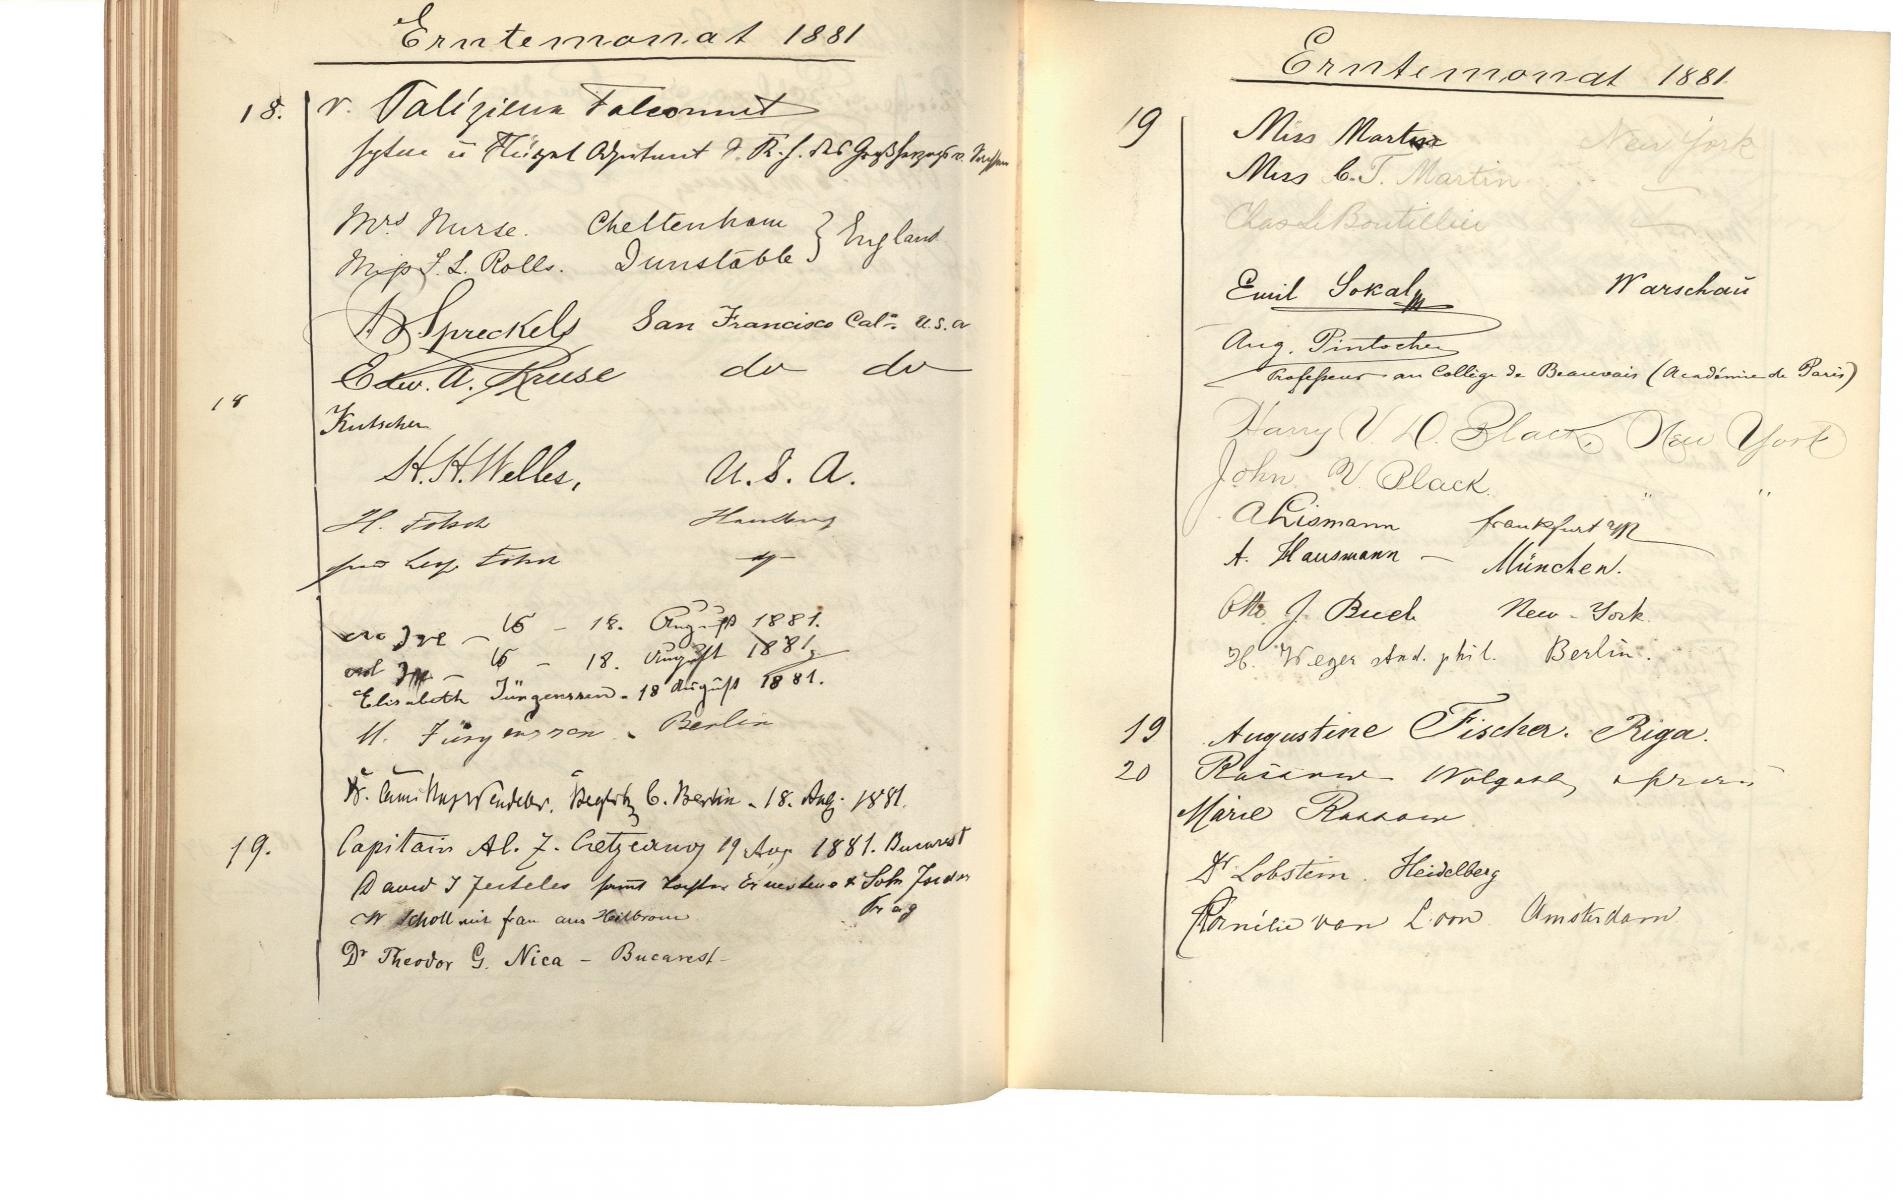 Erntemonat 1881
18. v. Falconnet
Flügel Adjutant d. K. H. des Großherzogs v.
Mrs Nurse. Cheltenham } England
Miss L. Rolls. Dunstable
Spreckels San Francisco Cal. U.S.A
Edw. A. Kruse do do
18
Kutscher
H. H. Welles, U. S. A.
H. Hamburg
16 - 18. August 1881.
16 - 18. August 1881.
Elisabeth Jürgenssen - 18 August 1881.
M. Jürgenssen - Berlin
Dr. Wendeler, Steglitz b. Berlin - 18. Aug. 1881.
19. Capitain Al. Z. 19 Aug 1881. Bucarest
David J Jeiteles Tochter Ernestine & Sohn
Prag
W Scholl mit frau aus Heilbronn
Dr Theodor G. Nica - Bucarest -
Erntemonat 1881.
19 Miss Martin New York
Miss C. T. Martin
Chas Le Boutillier
Emil Sokal Warschau
Aug. Pintscher
Professeur au Collège de Beauvais (Académie de Paris)
Harry V. D. Black, New York
John V. Black. " "
A Lismann frankfurt a/M
A. Hausmann - München.
Otto J. Buch New-York.
H. Weger stud. phil. Berlin.
19 Augustine Fischer. Riga.
20 Wolgast
Marie Rassow
Dr Lobstein. Heidelberg
Cornélie van Loon Amsterdam